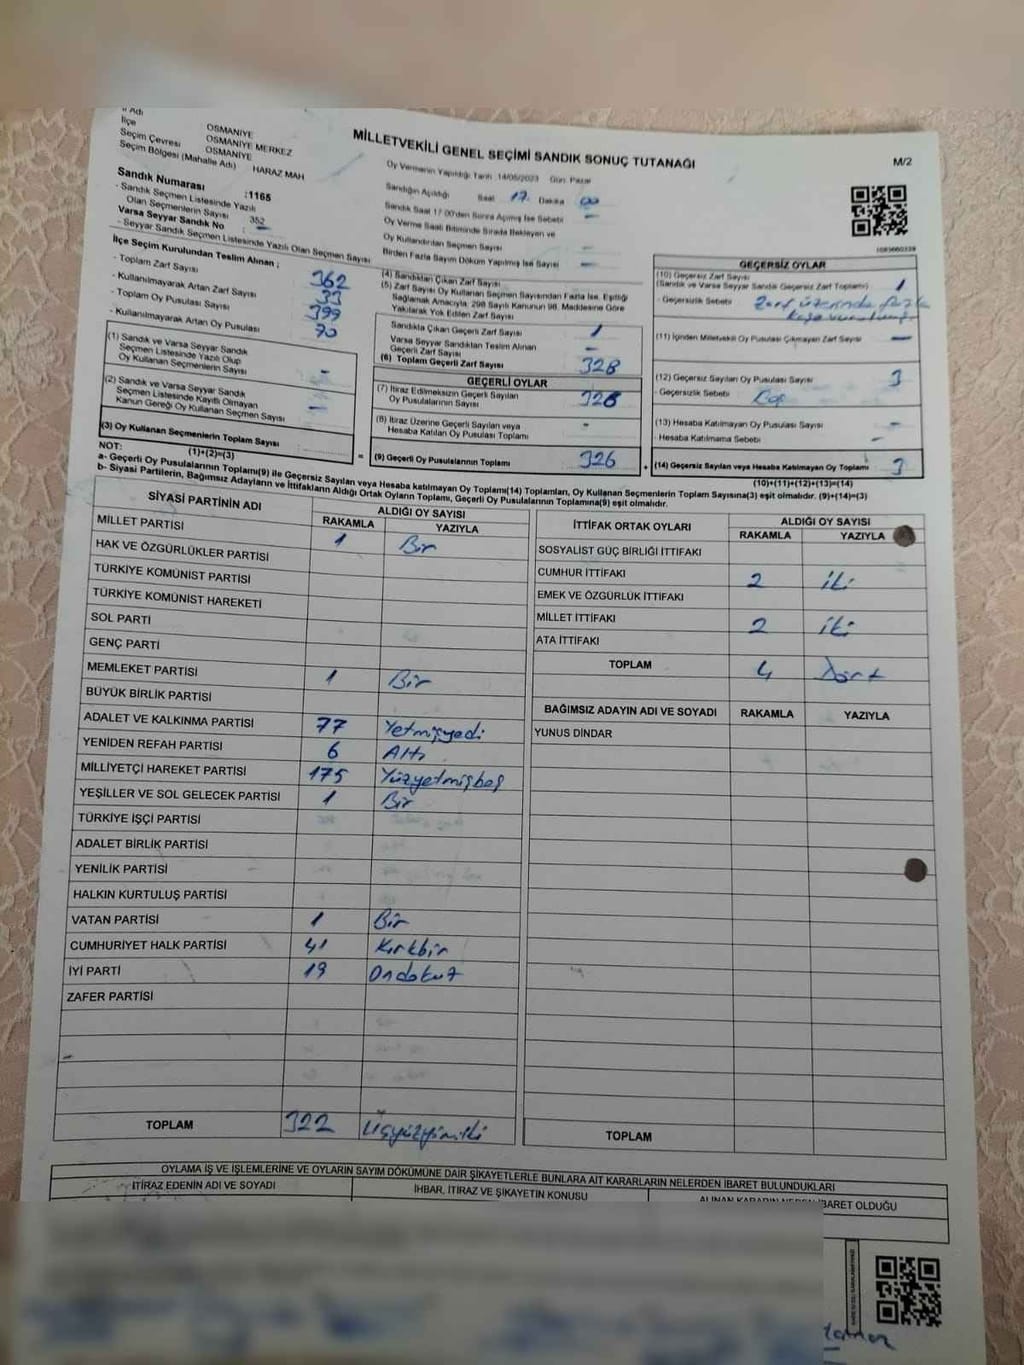 İl Adı
İlçe OSMANİYE
Seçim Çevresi OSMANİYE MERKEZ
Seçim Bölgesi (Mahalle Adı) OSMANİYE
HARAZ MAH
Sandık Numarası :1165
- Sandık Seçmen Listesinde Yazılı
Olan Seçmenlerin Sayısı 352
Varsa Seyyar Sandık No
- Seyyar Sandık Seçmen Listesinde Yazılı Olan Seçmen Sayısı
MİLLETVEKİLİ GENEL SEÇİMİ SANDIK SONUÇ TUTANAĞI
M/2
Oy Vermenin Yapıldığı Tarih 14/05/2023 Gün Pazar
Sandığın Açıldığı Saat 17. Dakika 00
Sandık Saat 17 00'den Sonra Açılmış İse Sebebi –
Oy Verme Saati Bitiminde Sırada Bekleyen ve
Oy Kullandırılan Seçmen Sayısı –
Birden Fazla Sayım Döküm Yapılmış İse Sayısı –
İlçe Seçim Kurulundan Teslim Alınan ;
- Toplam Zarf Sayısı 362
- Kullanılmayarak Artan Zarf Sayısı 33
- Toplam Oy Pusulası Sayısı 399
- Kullanılmayarak Artan Oy Pusulası 70
(1) Sandık ve Varsa Seyyar Sandık
Seçmen Listesinde Yazılı Olup
Oy Kullanan Seçmenlerin Sayısı –
(2) Sandık ve Varsa Seyyar Sandık
Seçmen Listesinde Kayıtlı Olmayan
Kanun Gereği Oy Kullanan Seçmen Sayısı –
(3) Oy Kullanan Seçmenlerin Toplam Sayısı
(1)+(2)=(3)
(4) Sandıktan Çıkan Zarf Sayısı
(5) Zarf Sayısı Oy Kullanan Seçmen Sayısından Fazla İse, Eşitliği
Sağlamak Amacıyla, 298 Sayılı Kanunun 98. Maddesine Göre
Yakılarak Yok Edilen Zarf Sayısı
Sandıkta Çıkan Geçerli Zarf Sayısı 1
Varsa Seyyar Sandıktan Teslim Alınan
Geçerli Zarf Sayısı –
(6) Toplam Geçerli Zarf Sayısı 328
GEÇERLİ OYLAR
(7) İtiraz Edilmeksizin Geçerli Sayılan
Oy Pusulalarının Sayısı 326
(8) İtiraz Üzerine Geçerli Sayılan veya
Hesaba Katılan Oy Pusulası Toplamı -
= (9) Geçerli Oy Pusulalarının Toplamı 326 +
GEÇERSİZ OYLAR
(10) Geçersiz Zarf Sayısı
(Sandık ve Varsa Seyyar Sandık Geçersiz Zarf Toplamı) 1
- Geçersizlik Sebebi Zarf üzerinde fazla
(11) İçinden Milletvekili Oy Pusulası Çıkmayan Zarf Sayısı –
(12) Geçersiz Sayılan Oy Pusulası Sayısı 3
- Geçersizlik Sebebi
(13) Hesaba Katılmayan Oy Pusulası Sayısı –
- Hesaba Katılmama Sebebi –
(14) Geçersiz Sayılan veya Hesaba Katılmayan Oy Toplamı 3
(10)+(11)+(12)+(13)=(14)
NOT:
a- Geçerli Oy Pusulalarının Toplamı(9) ile Geçersiz Sayılan veya Hesaba katılmayan Oy Toplamı(14) Toplamları, Oy Kullanan Seçmenlerin Toplam Sayısına(3) eşit olmalıdır. (9)+(14)=(3)
b- Siyasi Partilerin, Bağımsız Adayların ve İttifakların Aldığı Ortak Oyların Toplamı, Geçerli Oy Pusulalarının Toplamına(9) eşit olmalıdır.
SİYASİ PARTİNİN ADI ALDIĞI OY SAYISI
RAKAMLA YAZIYLA
MİLLET PARTİSİ 1 Bir
HAK VE ÖZGÜRLÜKLER PARTİSİ
TÜRKİYE KOMÜNİST PARTİSİ
TÜRKİYE KOMÜNİST HAREKETİ
SOL PARTİ
GENÇ PARTİ
MEMLEKET PARTİSİ 1 Bir
BÜYÜK BİRLİK PARTİSİ
ADALET VE KALKINMA PARTİSİ 77 Yetmişyedi
YENİDEN REFAH PARTİSİ 6 Altı
MİLLİYETÇİ HAREKET PARTİSİ 175 Yüzyetmişbeş
YEŞİLLER VE SOL GELECEK PARTİSİ 1 Bir
TÜRKİYE İŞÇİ PARTİSİ
ADALET BİRLİK PARTİSİ
YENİLİK PARTİSİ
HALKIN KURTULUŞ PARTİSİ
VATAN PARTİSİ 1 Bir
CUMHURİYET HALK PARTİSİ 41 Kırkbir
İYİ PARTİ 19 Ondokuz
ZAFER PARTİSİ
TOPLAM 322 Üçyüzyirmiiki
İTTİFAK ORTAK OYLARI ALDIĞI OY SAYISI
RAKAMLA YAZIYLA
SOSYALİST GÜÇ BİRLİĞİ İTTİFAKI
CUMHUR İTTİFAKI 2 iki
EMEK VE ÖZGÜRLÜK İTTİFAKI
MİLLET İTTİFAKI 2 iki
ATA İTTİFAKI
TOPLAM 4 Dört
BAĞIMSIZ ADAYIN ADI VE SOYADI RAKAMLA YAZIYLA
YUNUS DİNDAR
TOPLAM
OYLAMA İŞ VE İŞLEMLERİNE VE OYLARIN SAYIM DÖKÜMÜNE DAİR ŞİKAYETLERLE BUNLARA AİT KARARLARIN NELERDEN İBARET BULUNDUKLARI
İTİRAZ EDENİN ADI VE SOYADI İHBAR, İTİRAZ VE ŞİKAYETİN KONUSU ALINAN KARARIN NEDEN İBARET OLDUĞU